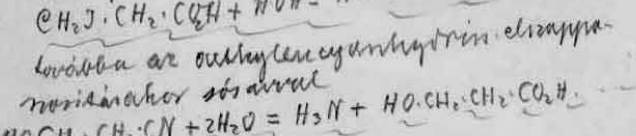 CH₂J·CH₂·CO₂H + HOH =
továbbá az aethylencyanhydrin elszappa-
nosításakor sósavval
HOCH₂·CH₂·CN + 2H₂O = H₃N + HO·CH₂·CH₂·CO₂H.